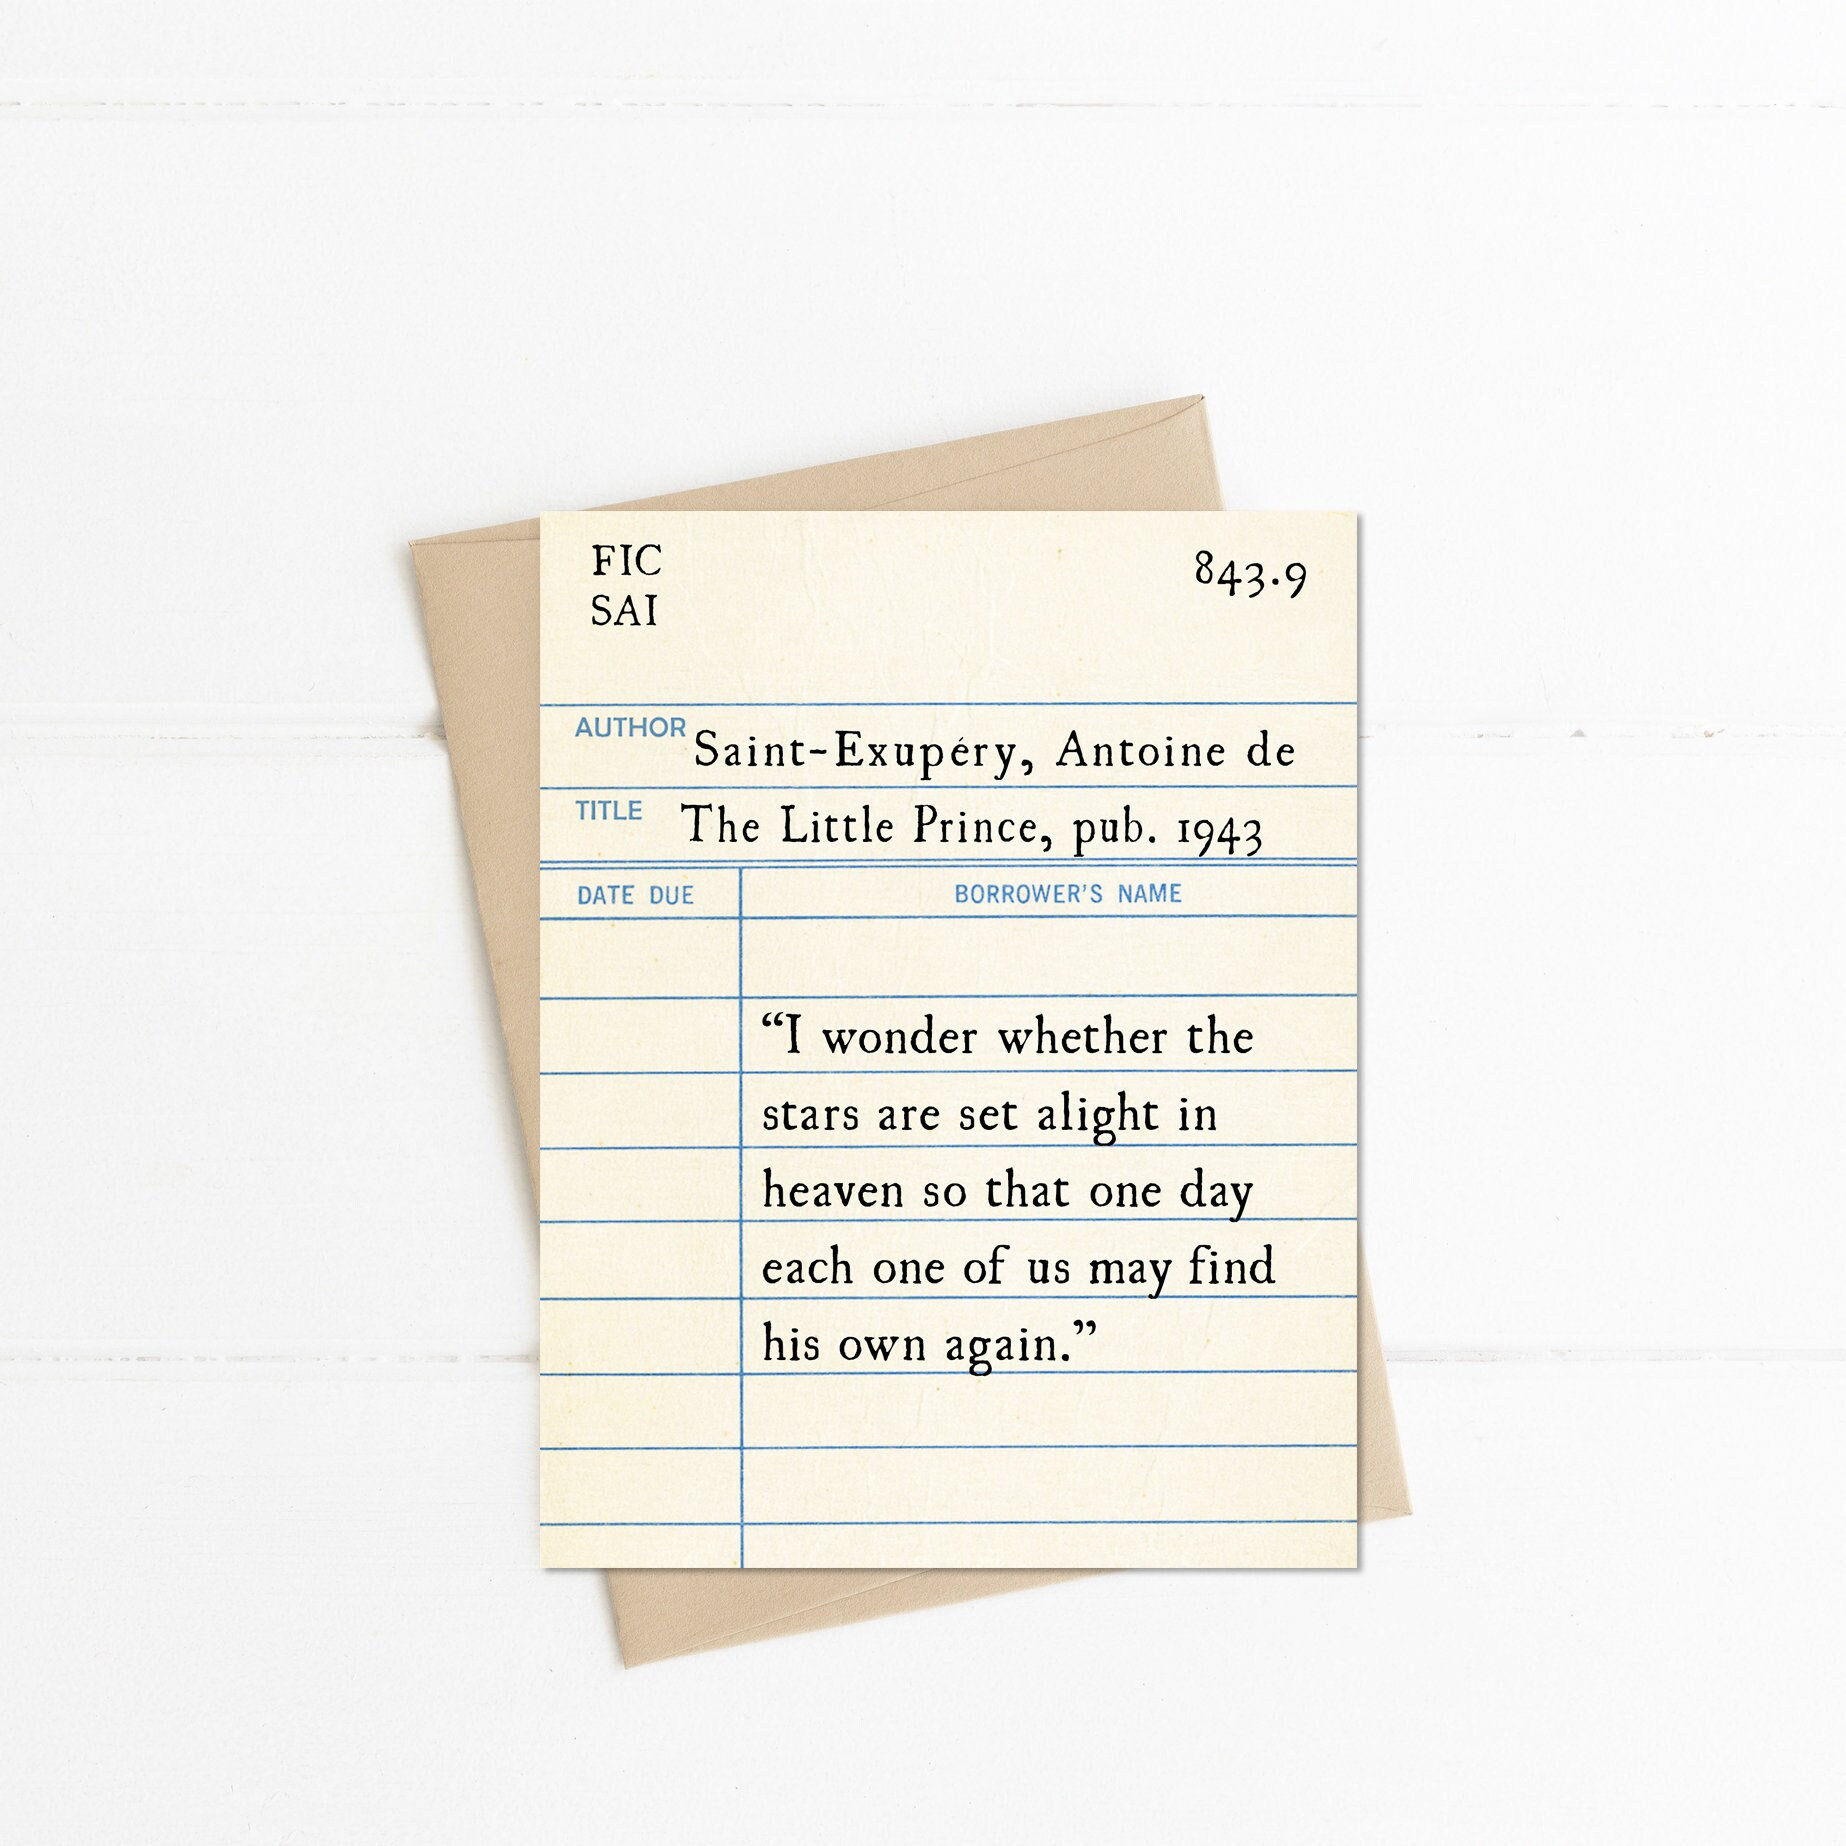 FIC
SAI
843.9
AUTHOR Saint-Exupéry, Antoine de
TITLE The Little Prince, pub. 1943
DATE DUE BORROWER'S NAME
“I wonder whether the
stars are set alight in
heaven so that one day
each one of us may find
his own again.”